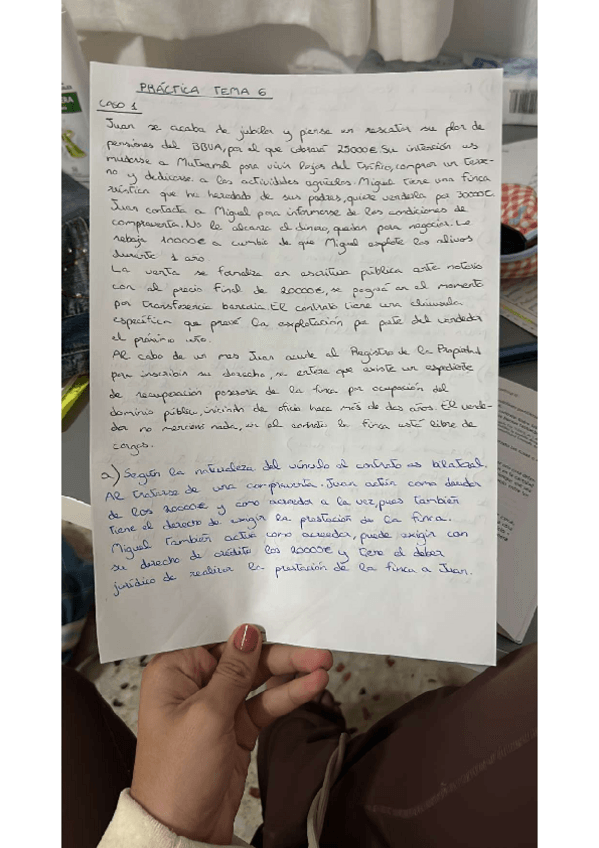 PRÁCTICA TEMA 6
CASO 1
Juan se acaba de jubilar y piensa en rescatar su plan de
pensiones del BBVA, por el que cobrará 25000€. Su intención es
mudarse a Mutxamel para vivir lejos del tráfico, comprar un terre-
no y dedicarse a las actividades agrícolas. Miguel tiene una finca
rústica que ha heredado de sus padres, quiere venderla por 30000€.
Juan contacta a Miguel para informarse de las condiciones de
compraventa. No le alcanza el dinero, quedan para negociar. Le
rebaja 10000€ a cambio de que Miguel explote los olivos
durante 1 año
La venta se formaliza en escritura pública ante notario
con el precio final de 20000€, se pagará en el momento
por transferencia bancaria. El contrato tiene una cláusula
específica que prevé la explotación por parte del vendedor
el próximo año.
Al cabo de un mes Juan acude al Registro de la Propiedad
para inscribir su derecho, se entera que existe un expediente
de recuperación posesoria de la finca por ocupación del
dominio público, iniciado de oficio hace más de dos años. El vende-
dor no mencionó nada, en el contrato la finca está libre de
cargas.
a) Según la naturaleza del vínculo el contrato es bilateral.
Al tratarse de una compraventa. Juan actúa como deudor
de los 20000€ y como acreedor a la vez, pues también
tiene el derecho de exigir la prestación de la finca.
Miguel también actúa como acreedor, puede exigir con
su derecho de crédito los 20000€ y tiene el deber
jurídico de realizar la prestación de la finca a Juan.